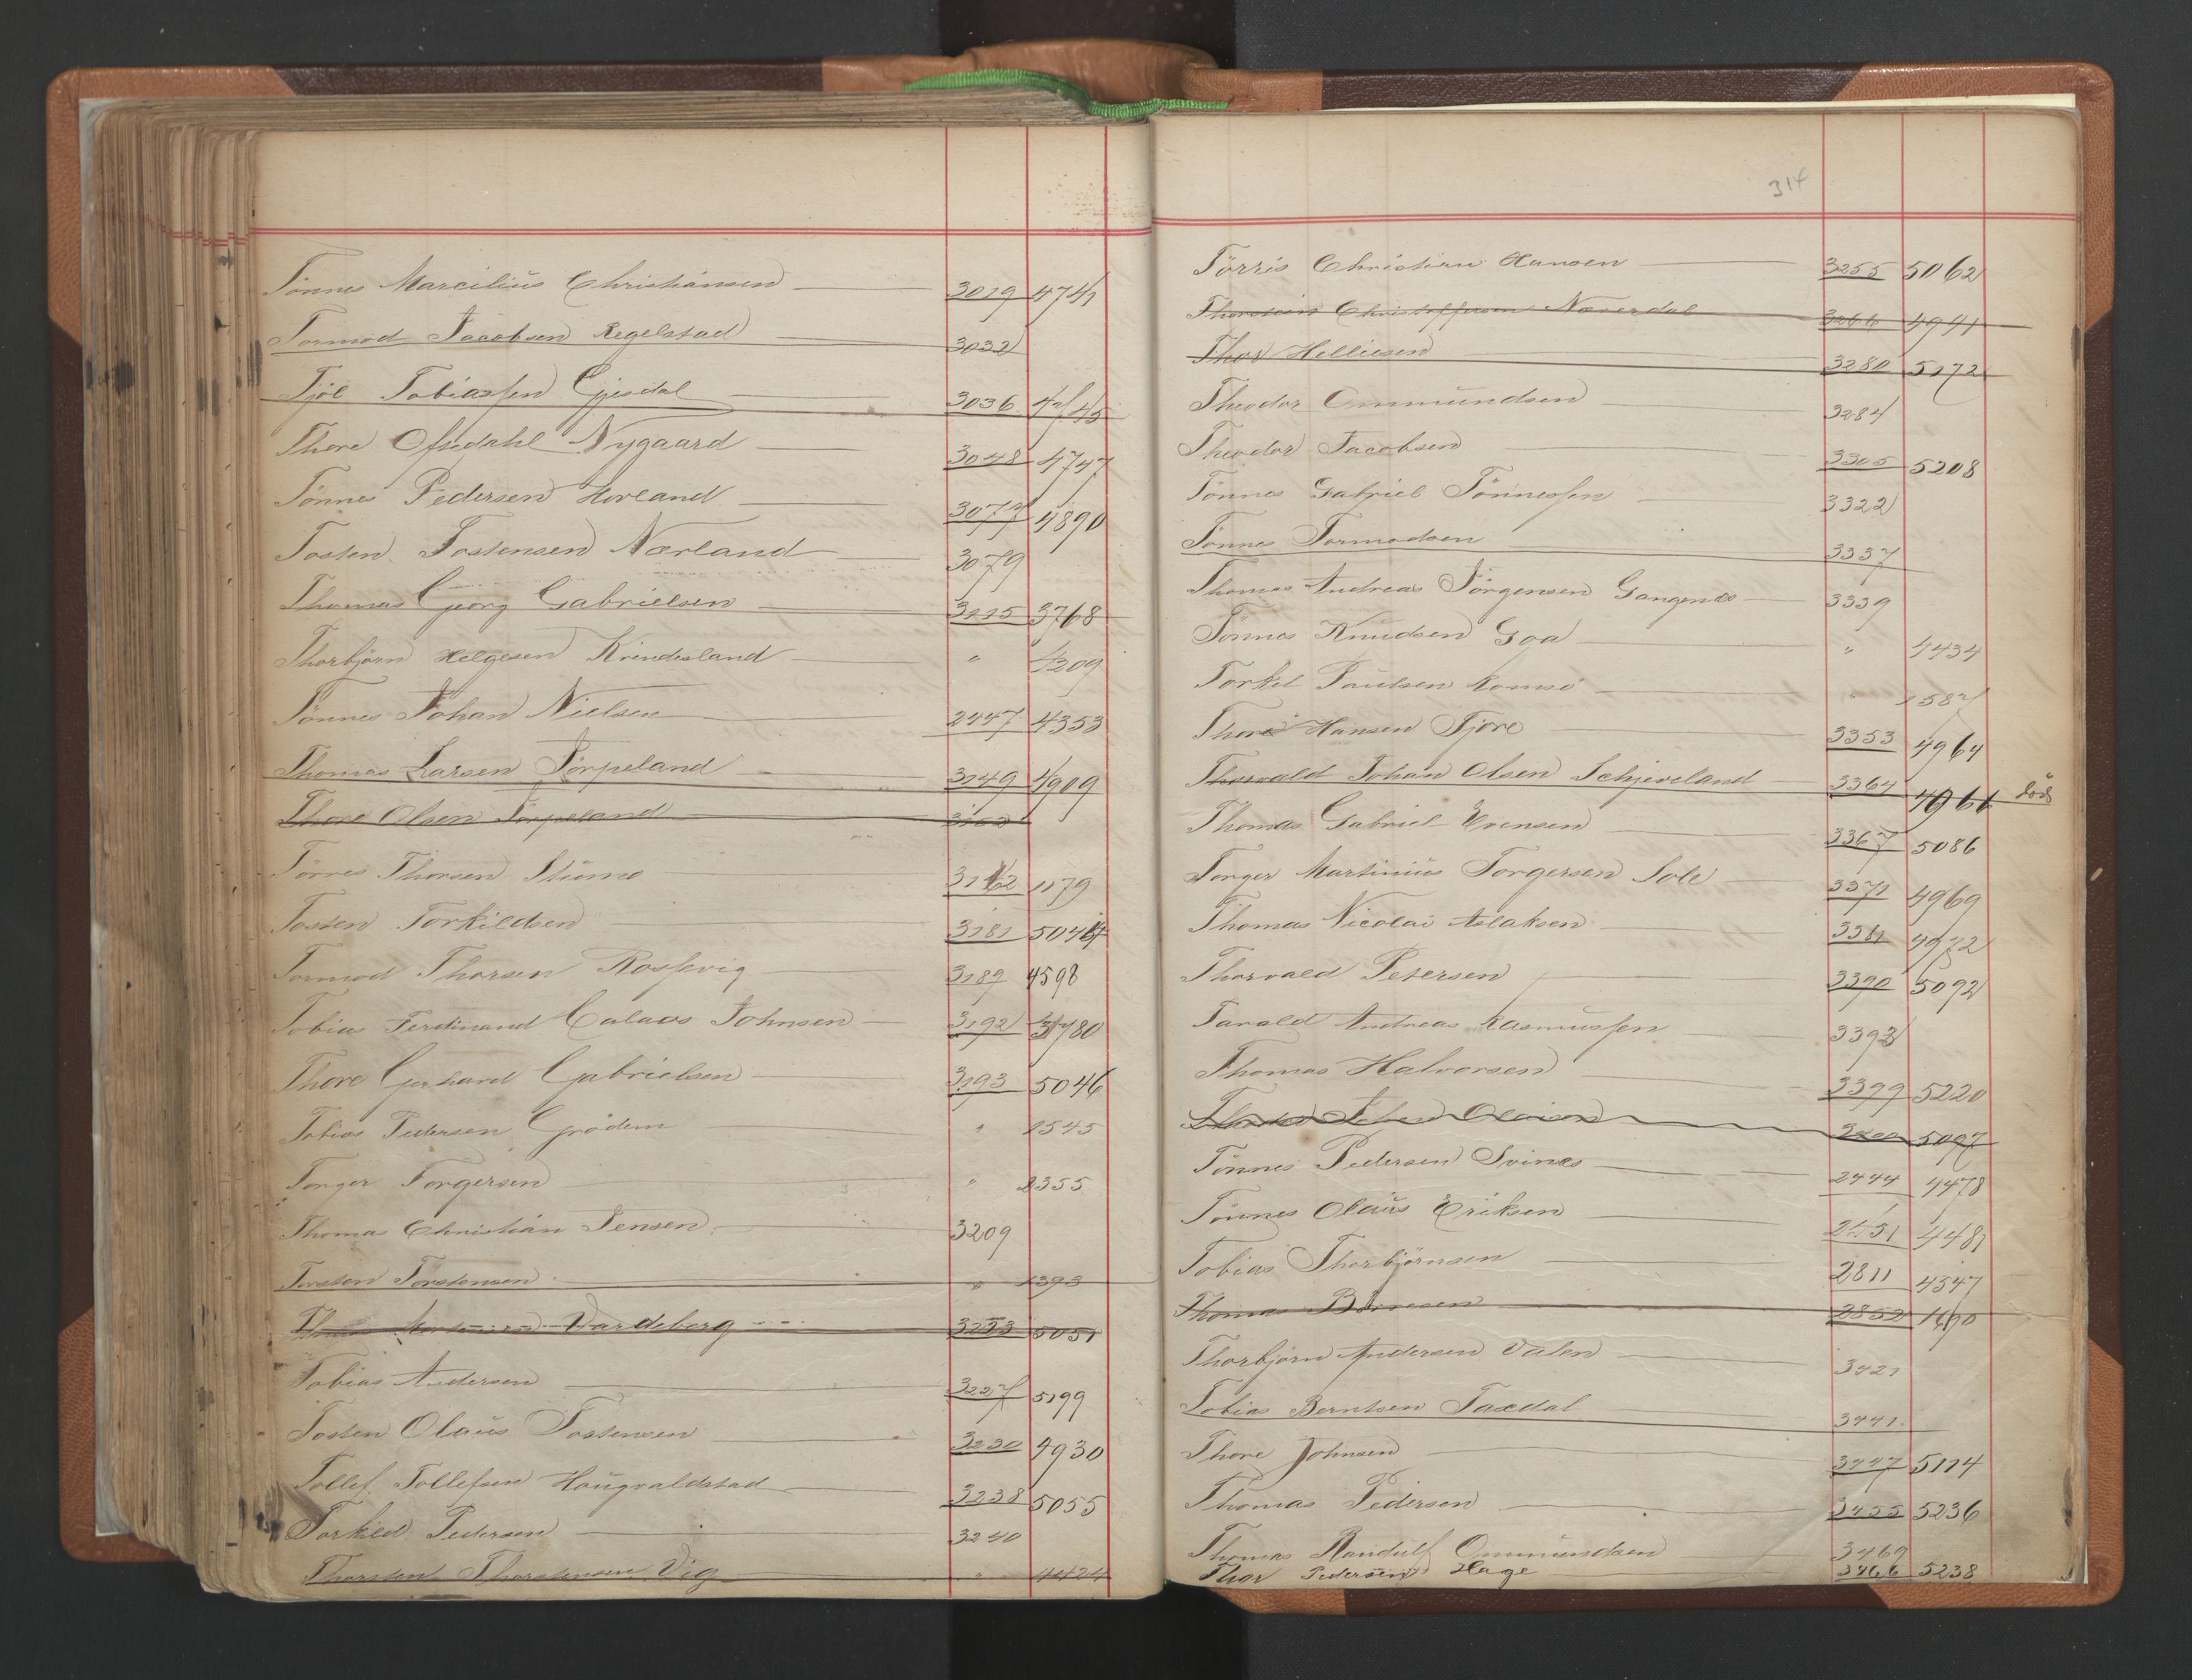 Tönnes Marcilius Christiansen 3019 4741
Tormod Jacobsen Regelstad 3032
Tjöl Tobiassen Gjesdal 3036 4745
Thore Ofsedahl Nygaard 3048 4747
Tönnes Pedersen Hovland 3077 4890
Tosten Tostensen Nærland 3079
Thomas Georg Gabrielsen 3115 3768
Thorbjörn Helgesen Kvindesland " 1209
Tönnes Johan Nielsen 2447 4353
Thomas Larsen Törpeland 3149 4909
Thore Olsen Törpeland
Törres Thorsen Stumo 3162 1179
Tosten Torkildsen 3181
Tormod Thorsen Rossevig 3189 4598
Tobias Ferdinand Calaos Johnsen 3192
Thore Gerhard Gabrielsen 3193 5046
Tobias Pedersen Grödem " 1545
Torger Torgersen " 2355
Thomas Christian Jensen 3209
Torsten Torstensen " 1393
Vardeberg 5051
Tobias Andersen 3227 5199
Tosten Olaus Tostensen 3230 4930
Tollef Tollefsen Hougvaldstad 3238 5055
Torkild Pedersen 3240
Thorsten Thorstensen Vig " 1424
314
Törris Christian Hansen 3255 5062
Thorstein Christoffersen Næverdal 3266 4941
Thor Helliesen 3280 5172
Theodor Ommundsen 3284
Theodor Jacobsen 3305 5208
Tönnes Gabriel Tönnessen 3322
Tönnes Tormodsen 3337
Thomas Andreas Jörgensen Gangenes 3339
Tönnes Knudsen Goa " 4434
Torkel Paulsen Romsö " 1587
Thore Hansen Tjöre 3353 4964
Thorvald Johan Olsen Schjeveland 3364 4966 död
Thomas Gabriel Evensen 3367 5086
Torger Martinius Torgersen Sole 3371 4969
Thomas Nicolai Aslaksen 3381 4972
Thorvald Petersen 3390 5092
Tarald Andreas Rasmussen 3393
Thomas Halvorsen 3399 5220
5097
Tönnes Pedersen Svines 2444 4478
Tönnes Olaus Eriksen 2451 4481
Tobias Thorbjörnsen 2811 4547
Thomas 2852 1690
Thorbjörn Andersen Valen 3421
Tobias Berntsen Taxdal 3441
Thore Johnsen 3447 5114
Thomas Pedersen 3455 5236
Thomas Randulf Ommundsen 3469
Thor Pedersen Hage 3466 5238